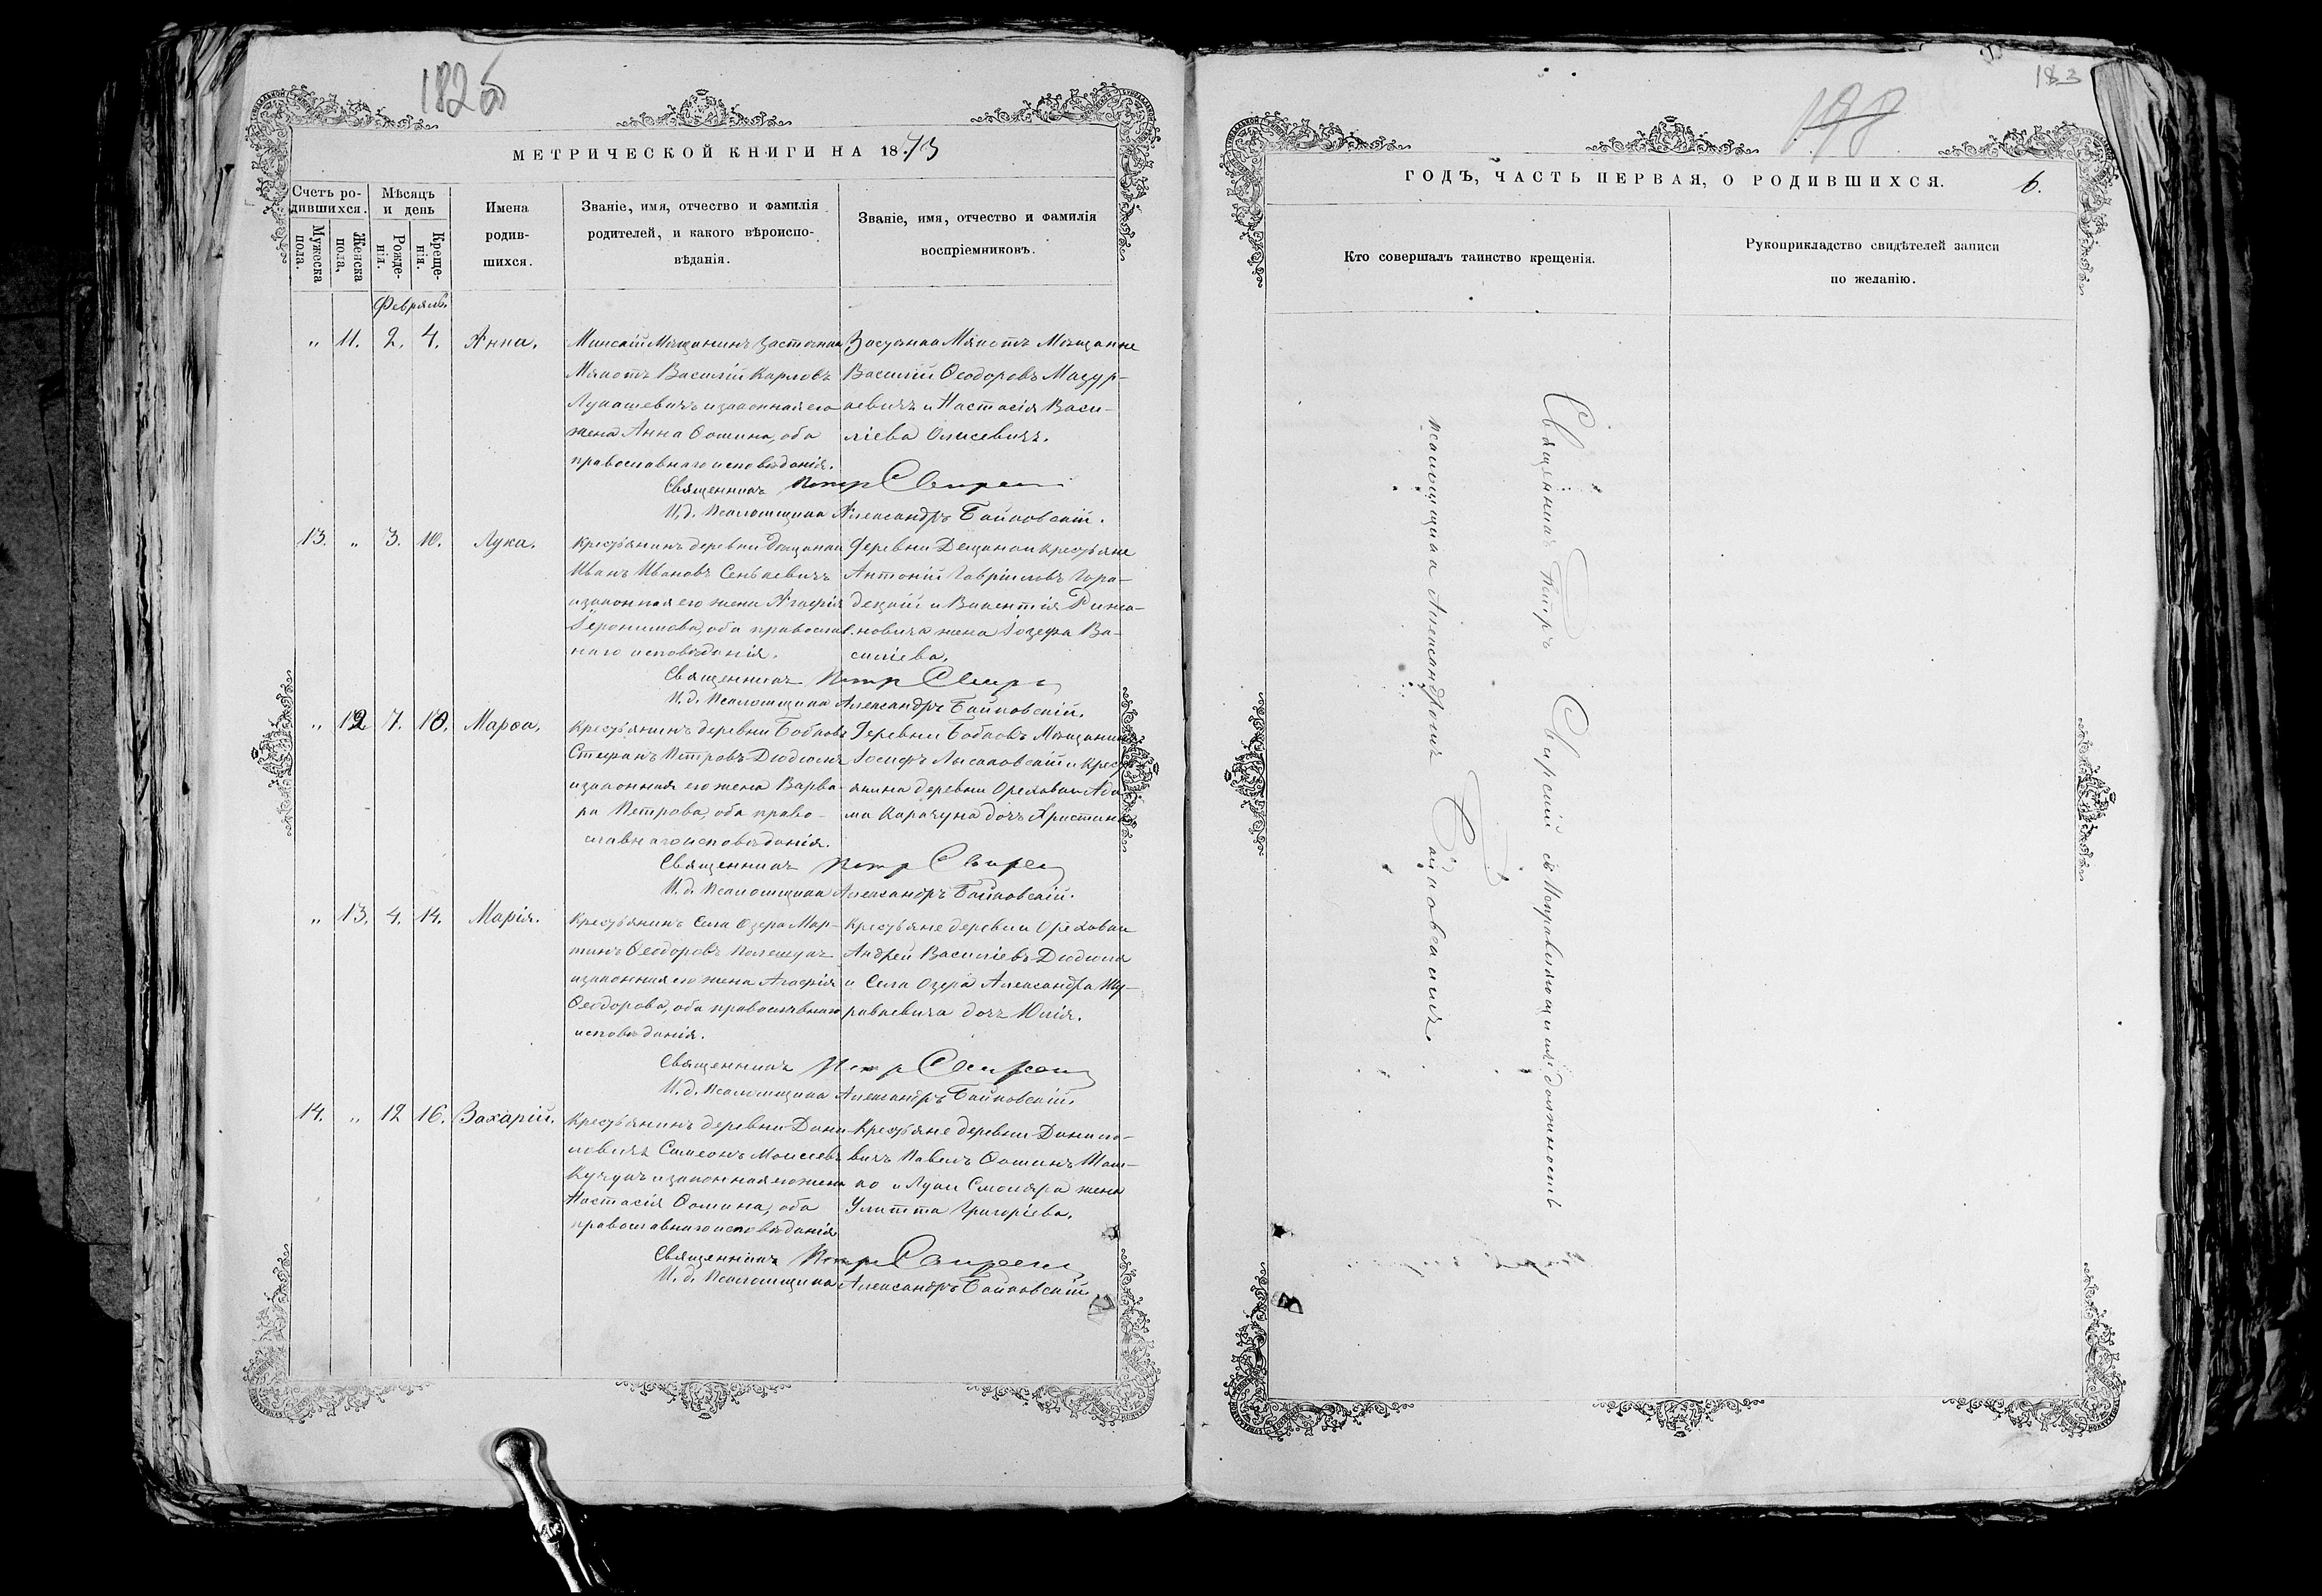 182б
МЕТРИЧЕСКОЙ КНИГИ НА 1873
Счетъ ро-
дившихся.
Мужеска
пола.
Женска
пола,
Мѣсяцъ
и день
Рожде-
нія.
Креще-
нія.
Имена
родив-
шихся.
Званіе, имя, отчество и фамилія
родителей, и какого вѣроиспо-
вѣданія.
Званіе, имя, отчество и фамилія
воспріемниковъ.
Февраль.
" 11. 2. 4. Анна.
Минскій Мѣщанинъ
Василій Карловъ
Лукашевичъ и законная его
жена Анна Ѳомина, оба
православнаго исповѣданія.
Мѣщанне
Василій Ѳеодоровъ Мазур-
кевичъ и Настасія Васи-
ліева
Священникъ Петръ
И.д. Псаломщика Александръ Байковскій.
13. " 3. 10. Лука.
Крестьянинъ деревни
Иванъ Ивановъ Сенкевичъ
и законная его жена Агафія
Іеронимова, оба православ-
наго исповѣданія.
деревни Дещанки крестьяне
Антоній Гавріиловъ Горо-
децкій и Викентія
новича жена Іозефа Ва-
силіева.
Священникъ Петръ
И.д. Псаломщика Александръ Байковскій.
" 12 7. 10. Марѳа.
Крестьянинъ деревни Бобковъ
Стефанъ Петровъ Дюдюля
и законная его жена Варва-
ра Петрова, оба право-
славнаго исповѣданія.
деревни Бобковъ Мѣщанинъ
Іосифъ Лысаковскій и крестья
янина деревни Ореховки Ада
ма Карачуна дочь Христина
Священникъ Петръ
И.д. Псаломщика Александръ Байковскій.
" 13. 4. 14. Марія.
Крестьянинъ Села Озера Мар-
тинъ Ѳеодоровъ Полещукъ
и законная его жена Агафія
Ѳеодорова, оба православнаго
исповѣданія.
Крестьяне деревни Ореховки
Андрей Василіевъ Дюдюля
и Села Озера Александра Жу-
равкевича дочь Юлія.
Священникъ Петръ
И.д. Псаломщика Александръ Байковскій.
14. " 12 16. Захарій.
Крестьянинъ деревни Дани-
ловичъ Симеонъ Моисеевъ
и законная его жена
Настасія Ѳомина, оба
православнаго исповѣданія
Крестьяне деревни Данило-
вичъ Павелъ Ѳоминъ
ко и Луки Смоляра жена
Улитта Григоріева.
Священникъ Петръ
И.д. Псаломщика Александръ Байковскій
183
198
ГОДЪ, ЧАСТЬ ПЕРВАЯ, О РОДИВШИХСЯ.
6.
Кто совершалъ таинство крещенія.
Рукоприкладство свидѣтелей записи
по желанію.
Священникъ Петръ Свирскій съ Исправляющимъ должность
псаломщика Александромъ Байковскимъ.